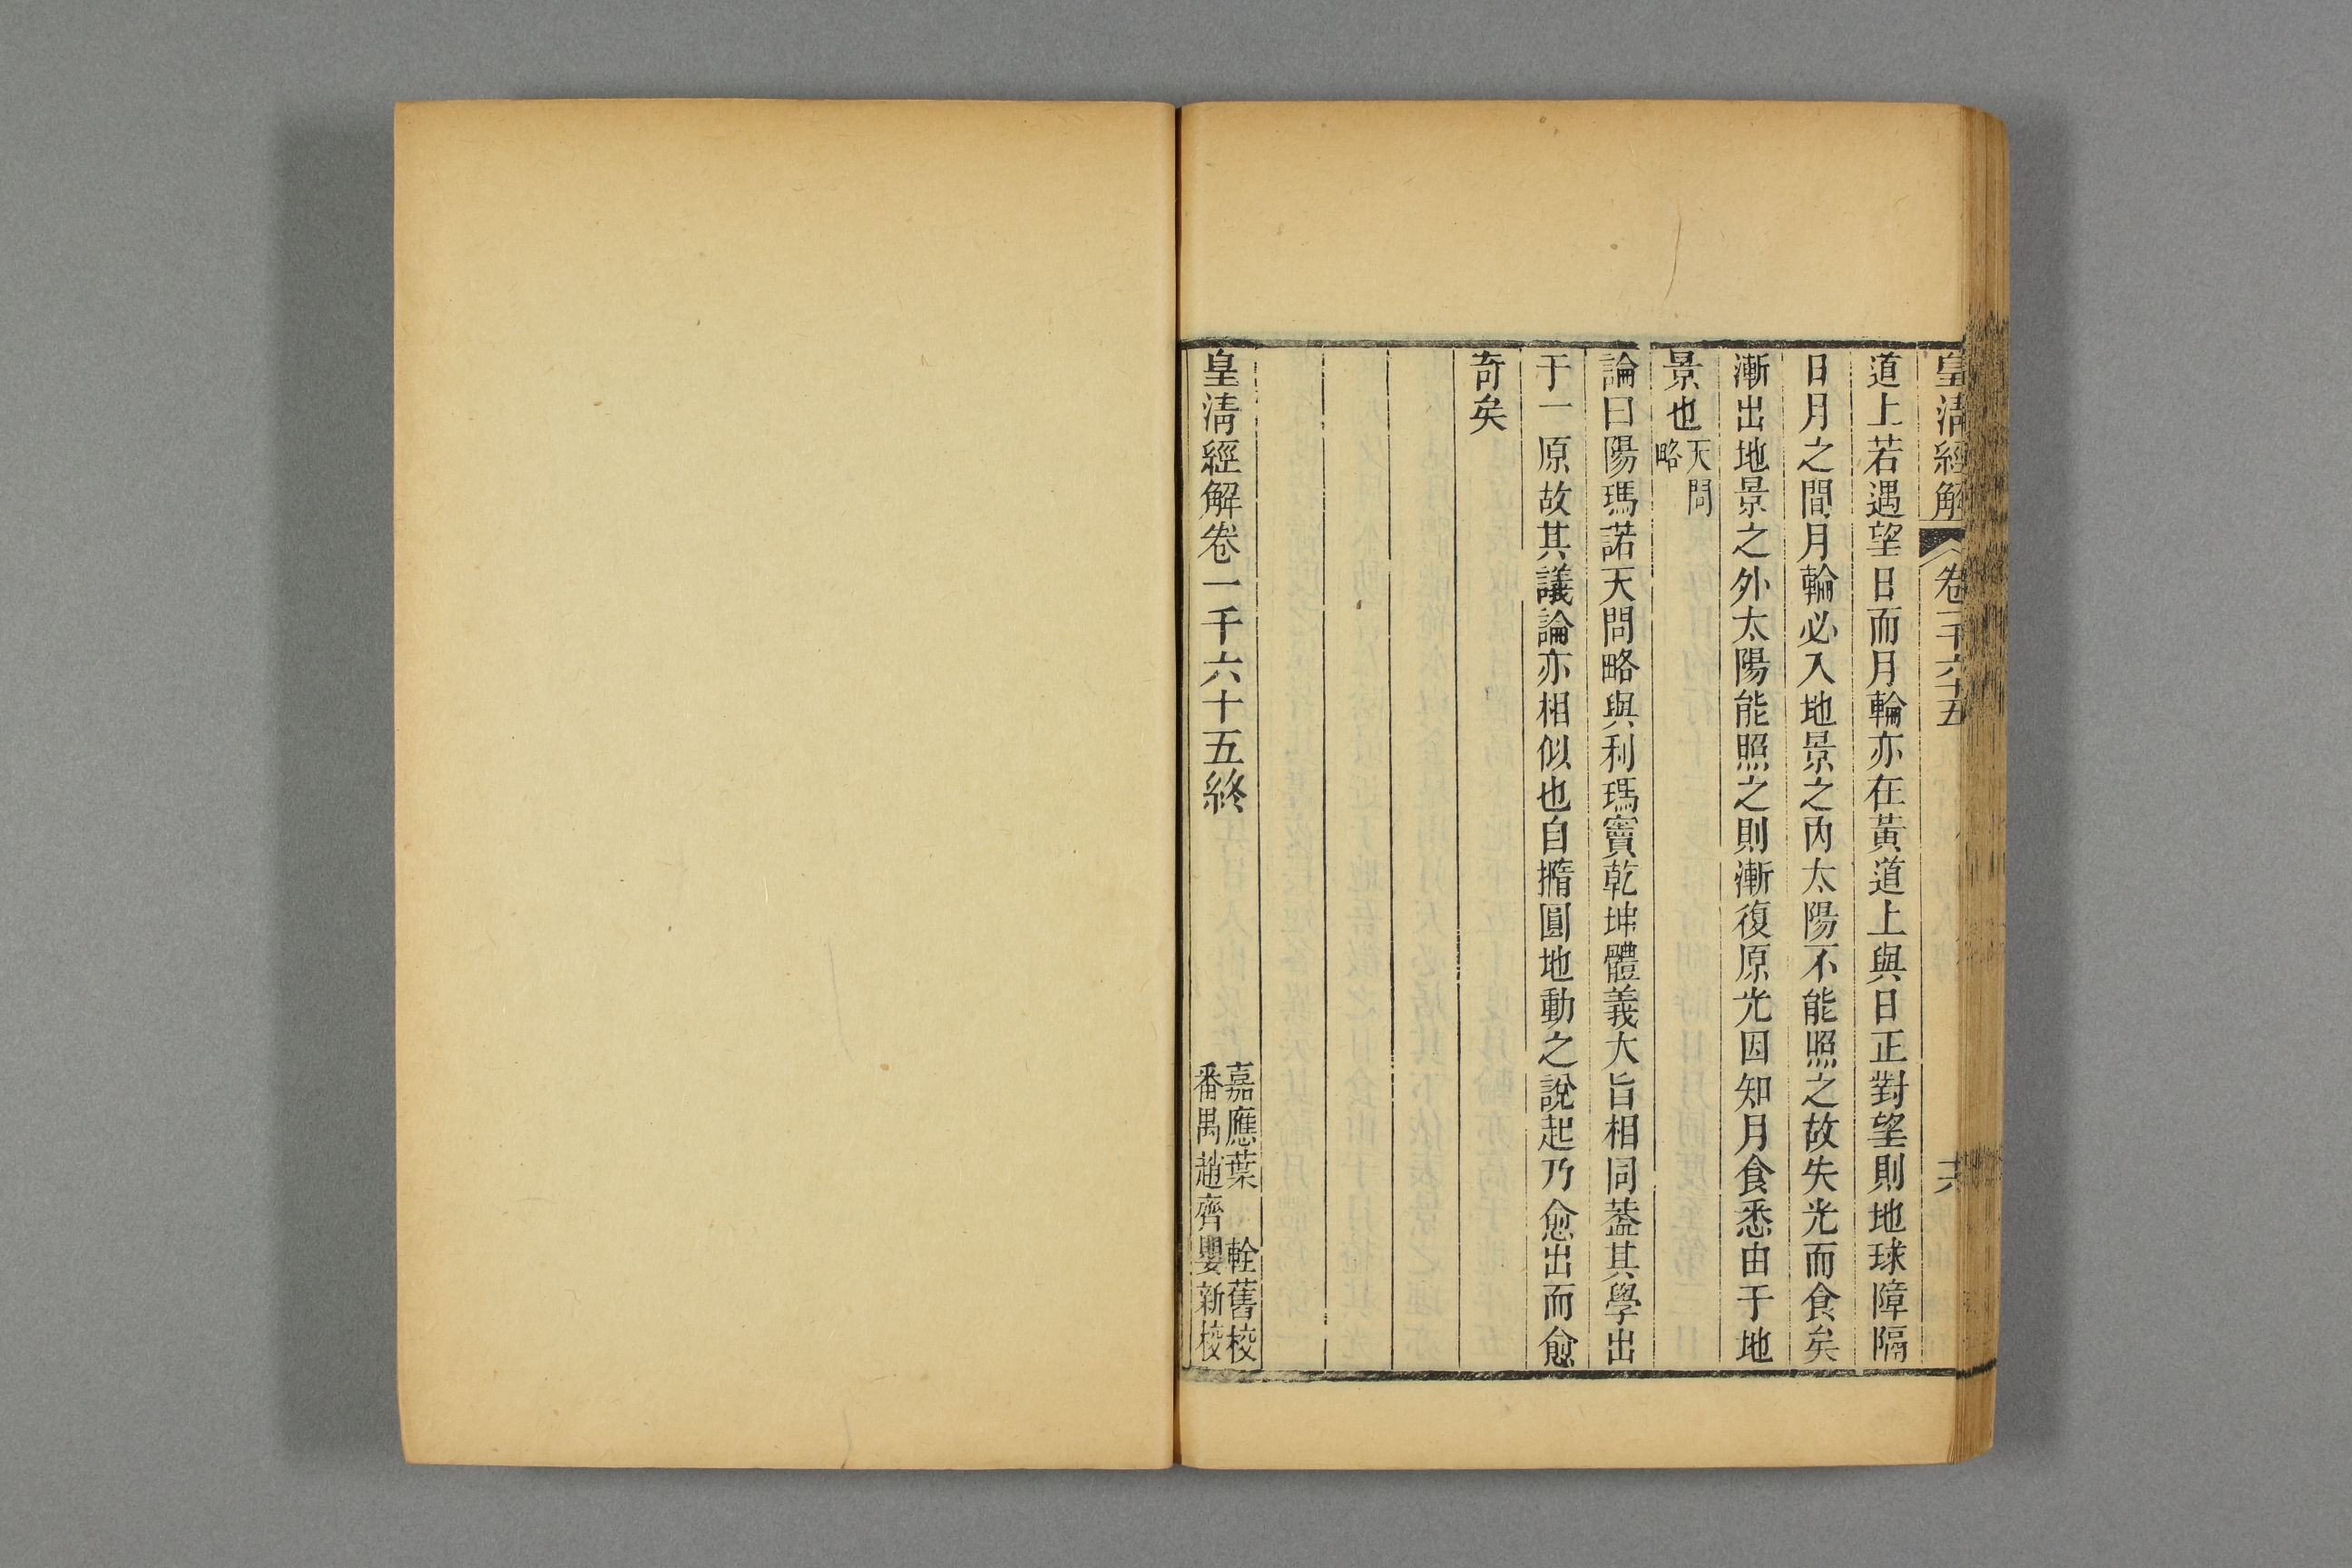 皇清經解 卷一千六十五 六
道上若遇望日而月輪亦在黃道上與日正對望則地球障隔
日月之間月輪必入地景之內太陽不能照之故失光而食矣
漸出地景之外太陽能照之則漸復原光因知月食悉由于地
景也天問略
論曰陽瑪諾天問略與利瑪竇乾坤體義大旨相同蓋其學出
于一原故其議論亦相似也自撱圓地動之說起乃愈出而愈
奇矣
皇清經解卷一千六十五終
嘉應葉 輇舊校
番禺趙齊嬰新校